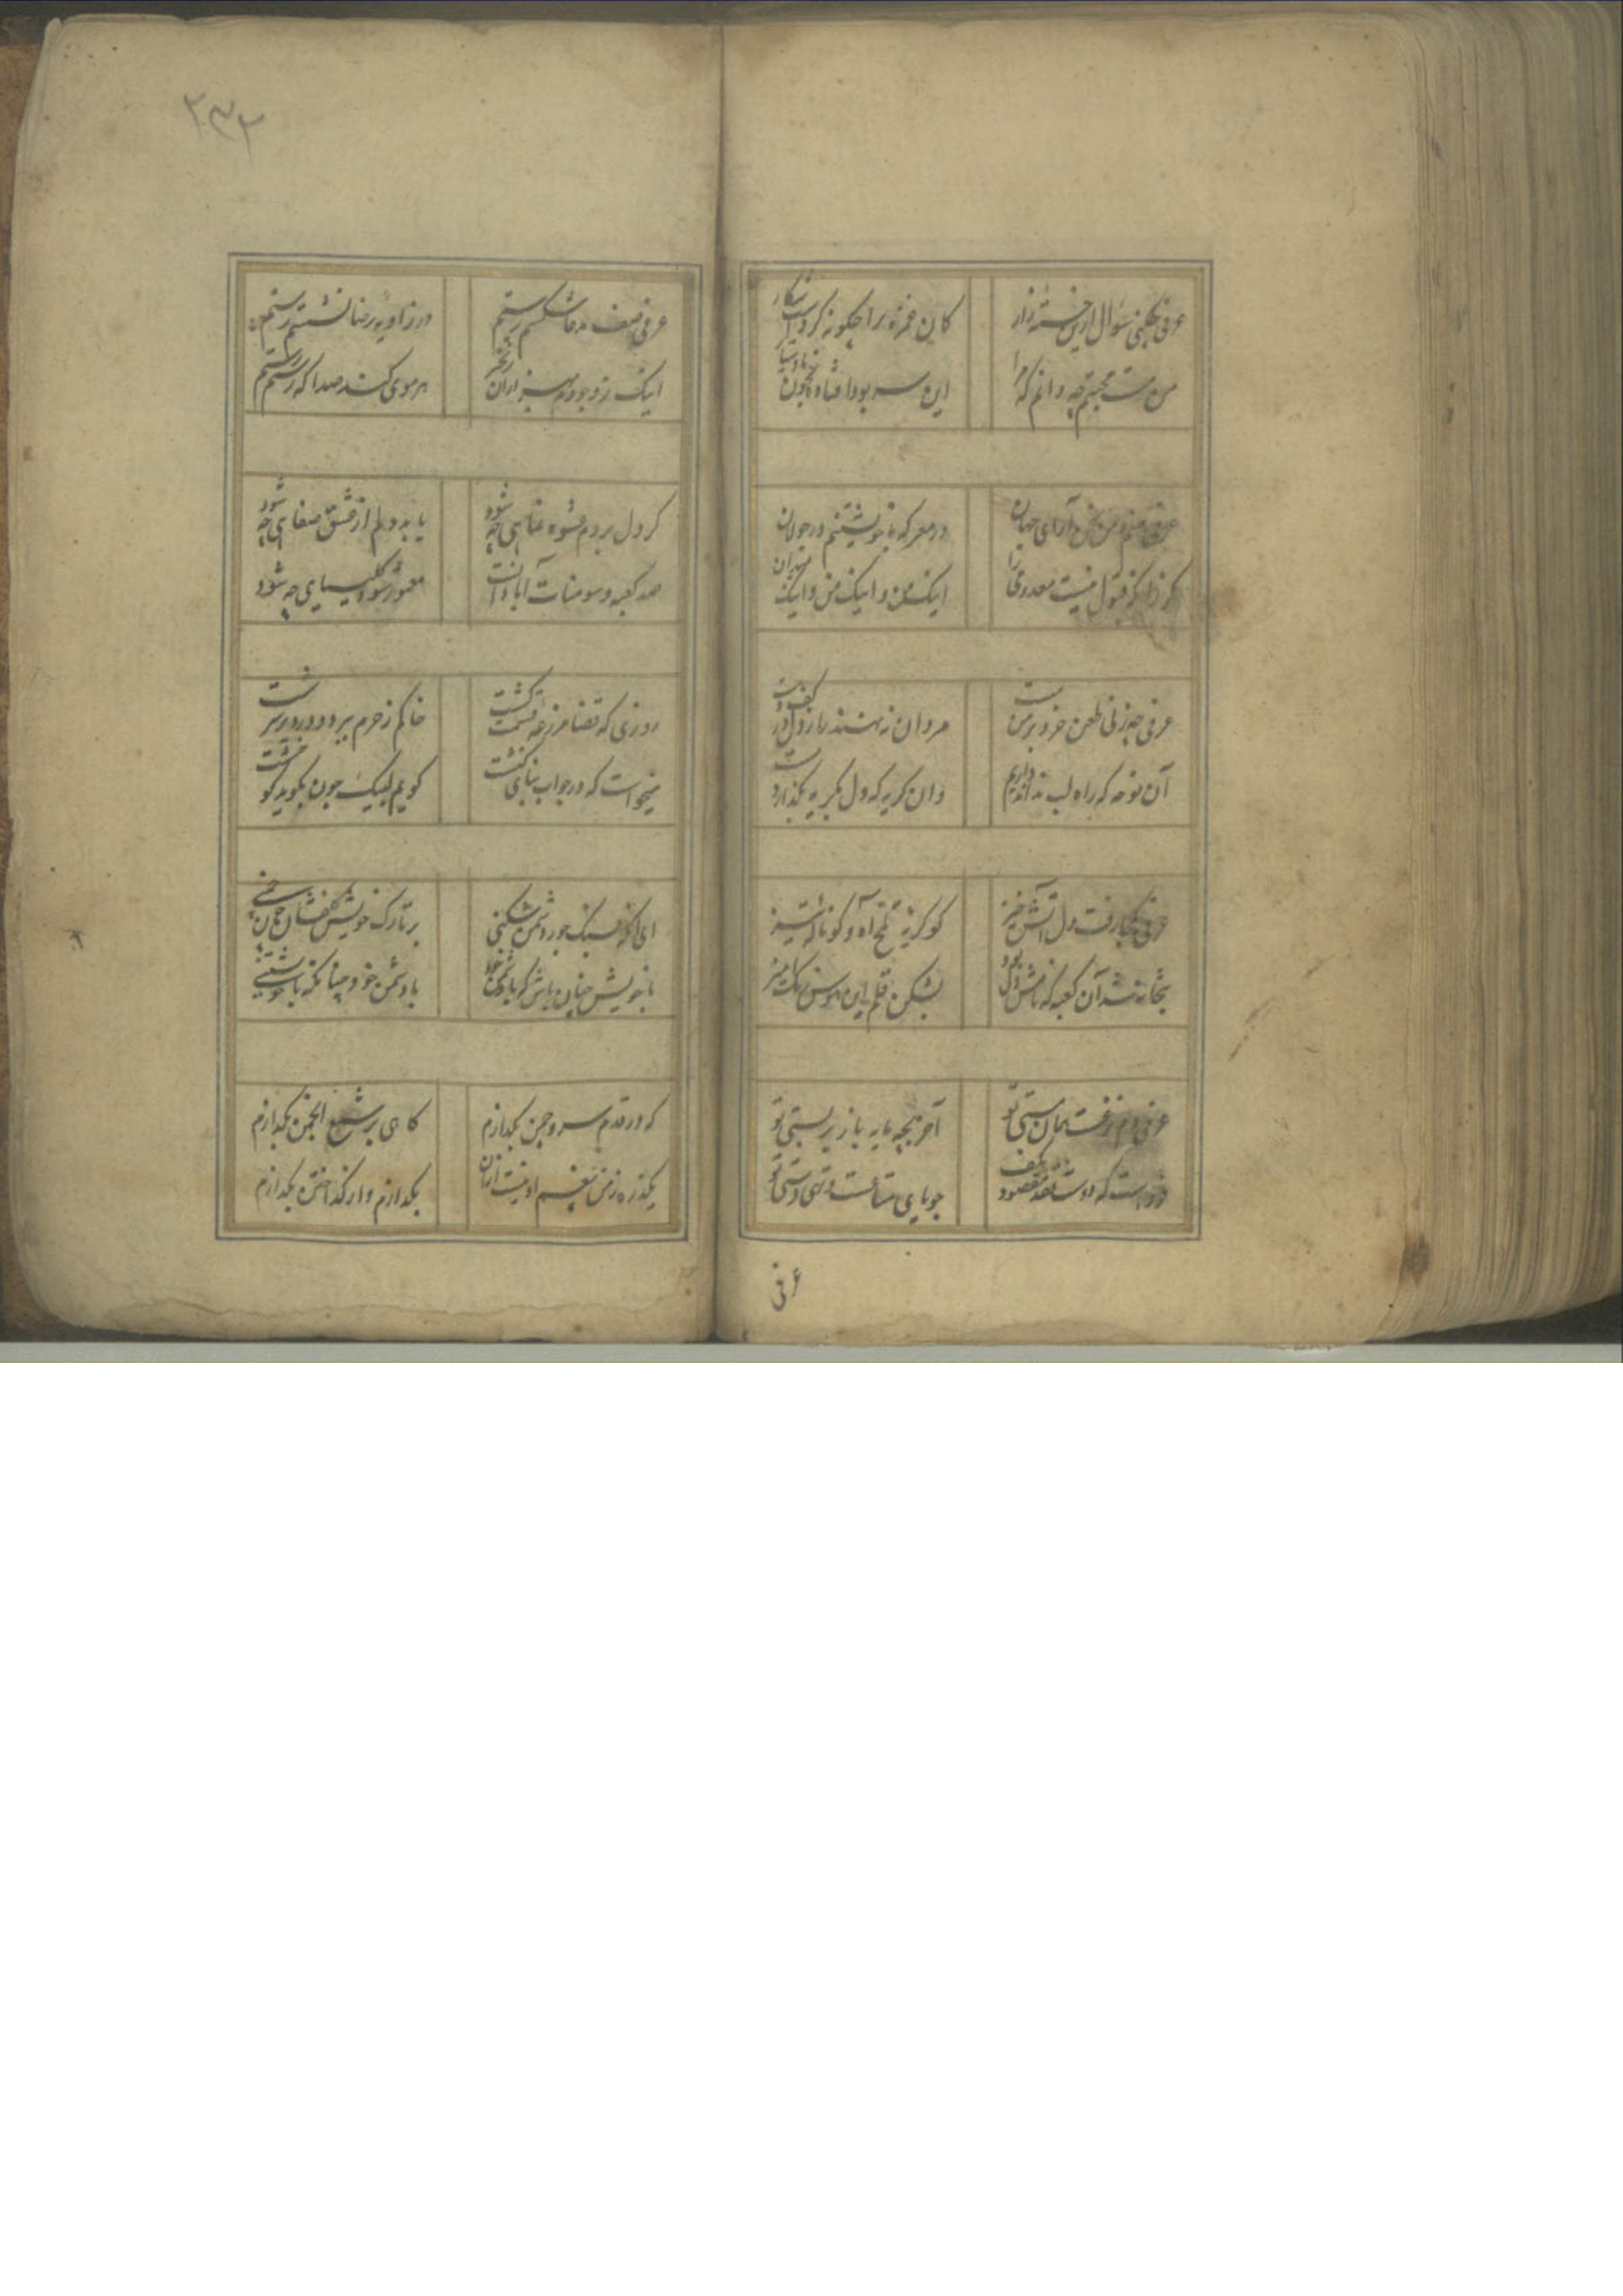 ۲۳۲
عرفی چکنی سوال ازین خسته زار
کان غمزه را چگونه کردست شکار
من مست محبتم چه دانم که مرا
این سر بود افتاده بخون
عرفی منم و من آرای جهان
در معرکه با خویشتنم در جولان
گر قبول نیست معذورم
اینک من و اینک من و اینک میدان
عرفی چه زنی طعن خرد بر من مست
مردان ننهند بار دل در کف دست
آن نوحه که راه لب نداند داریم
وان گریه که دل بگرید بگذارد
عرفی بکجا رفت دل آتش خیز
کو گریه تلخ آه و کو ناله تیز
بتخانه شد آن کعبه که نامش دل بود
بشکن قلم این هوس رنگ آمیز
عرفی دم نزعست همان مستی تو
آخر بچه مایه بار بر بستی تو
فرداست که دوست نقد مقصود بکف
جویای متاعست و تهی دستی تو
عرفی
عرفی ضعف مدعا شکستم رستم
در زاویه رضا نشستم رستم
اینک ز وجودم هزاران
هر موی کند صدا که رستم رستم
گر دل بردم عشوه نمایی چه شود
یابد دلم از عشق صفایی چه شود
صد کعبه و سومنات آبادانست
معمور شود کلیسیایی چه شود
روزی که قضا مزرعه قسمت کشت
خاکم ز حرم برد و در دیر سرشت
میخواست که در جواب ناقوس کنشت
گویم لبیک چون بگوید
ای آنکه بسنگ جور دشمن شکنی
بر تارک خویش
با خویش چنان باش که با دشمن خود
با دشمن خود چنانکه با خویشتنی
که در قدم سرو چمن بگدازم
گاهی بر شمع انجمن بگدازم
یکذره ز من نیست ازان
بگدازم و از گداختن بگدازم